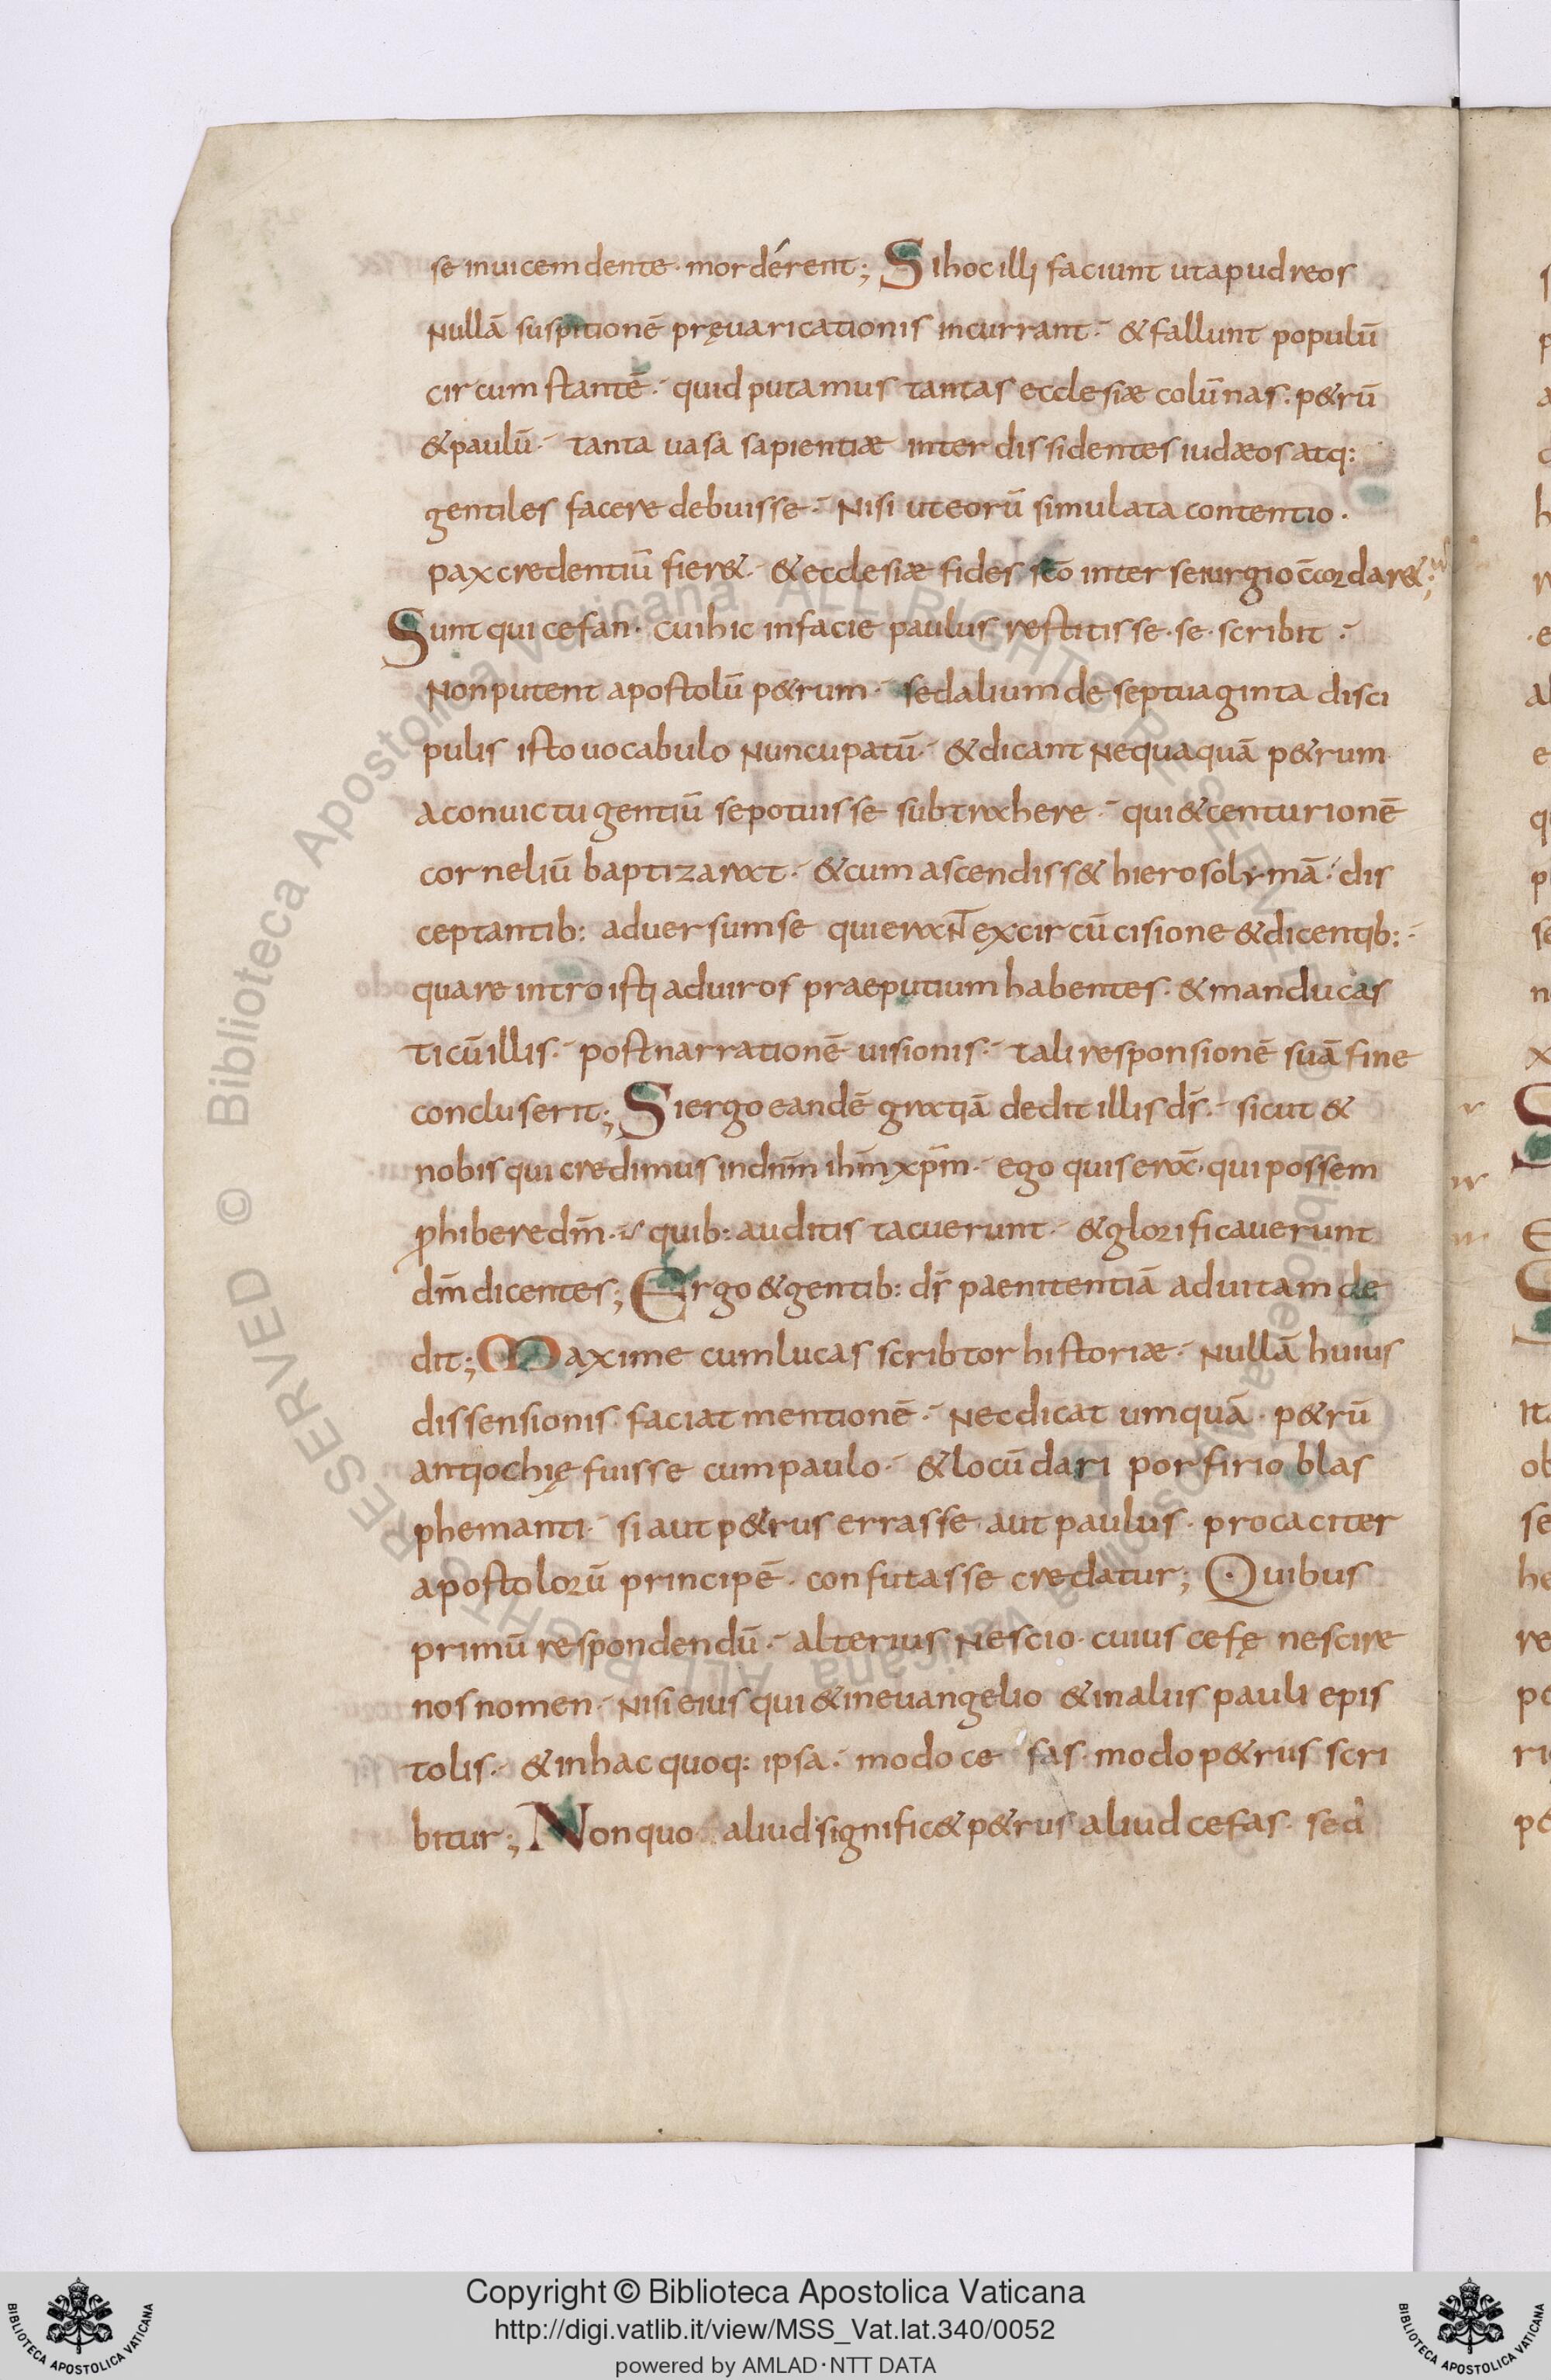 se inuicem dente · mordérent; Si hoc illi faciunt ut apud reos
Nullā suspitionē pręuaricationis incurrant · & fallunt populū
circumstantē · quid putamus tantas ecclesiæ colūnas · p&rū
& paulū · tanta uasa sapientiæ inter dissidentes iudæos atq:
gentiles facere debuisse · Nisi ut eorū simulata contentio ·
pax credentiū fier& · & ecclesiæ fides sc̄o inter se iurgio c̄cordar&;
Sunt qui cefan · cui hic in facie paulus restitisse · se · scribit ·
Non putent apostolū p&rum · sed alium de septuaginta disci
pulis isto uocabulo Nuncupatū · & dicant Nequaquā p&rum
a conuictu gentiū se potuisse subtrahere · qui & centurionē
corneliū baptizarat · & cum ascendiss& hierosolymā · dis
ceptantib: aduersum se qui eraN̄t ex circūcisione & dicentib: ·
quare introisti ad uiros praeputium habentes · & manducas
ti cū illis · post narrationē uisionis · tali responsionē suā fine
concluserit; Si ergo eandē gratiā dedit illis ds̄ · sicut &
nobis qui credimus in dn̄m ihm̄ xp̄m · ego quis erā · qui possem
ꝓhibere dm̄ · quib: auditis tacuerunt · & glorificauerunt
dm̄ dicentes; Ergo & gentib: ds̄ paenitentiā ad uitam de
dit; Maxime cum lucas scribtor historiæ · Nullā huius
dissensionis faciat mentionē · Nec dicat umquā · p&rū
antiochię fuisse cum paulo · & locū dari porfirio blas
phemanti · si aut p&rus errasse aut paulus · procaciter
apostolorū principē · confutasse credatur; Quibus
primū respondendū · alterius Nescio · cuius cefę nescire
nos nomen · Nisi eius qui & in euangelio & in aliis pauli epis
tolis · & in hac quoq: ipsa · modo ce fas · modo p&rus scri
bitur; Non quo aliud signific& p&rus aliud cefas · sed
Copyright © Biblioteca Apostolica Vaticana
http://digi.vatlib.it/view/MSS_Vat.lat.340/0052
powered by AMLAD·NTT DATA
BIBLIOTECA APOSTOLICA VATICANA
BIBLIOTECA APOSTOLICA VATICANA